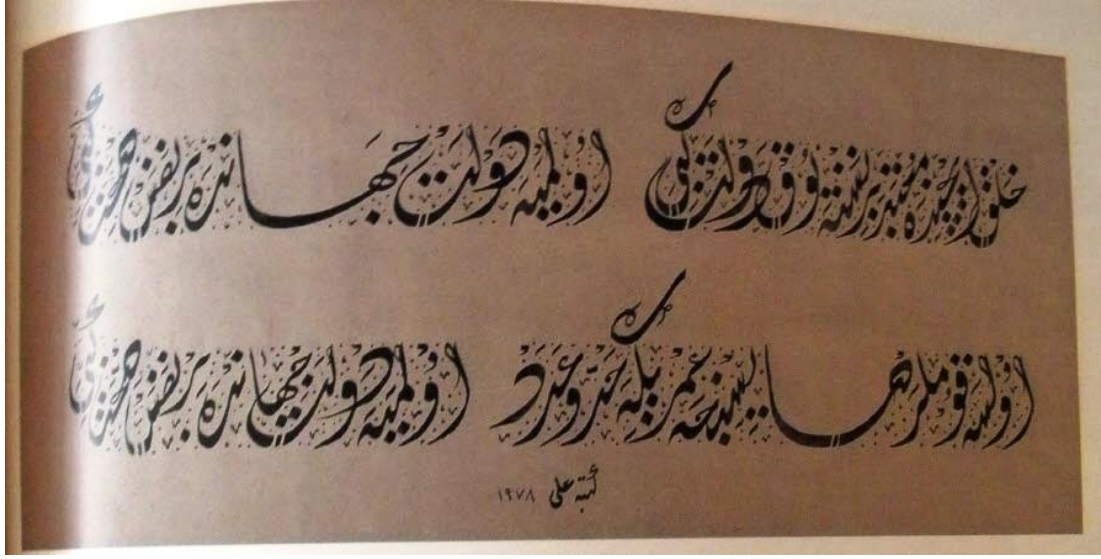 خلق ایچنده معتبر بر نسنه یوق دولت كبی اولمیه دولت جهانده بر نفس صحت كبی
اولسه قوملر صاییسنجه عمریكه حد و عدد اولمیه دولت جهانده بر نفس صحت كبی
كتبه علی ١٩٧٨